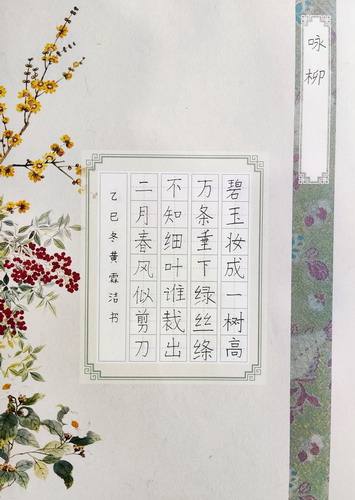 咏柳
碧玉妆成一树高
万条垂下绿丝绦
不知细叶谁裁出
二月春风似剪刀
乙巳冬黄霖洁书